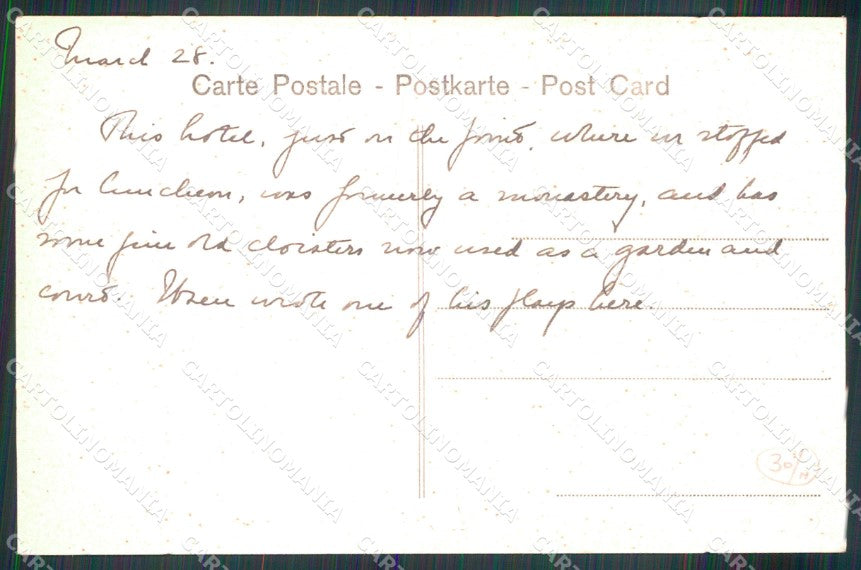 March 28.
Carte Postale - Postkarte - Post Card
This hotel, just on the point, where we stopped
for luncheon, was formerly a monastery, and has
some fine old cloisters now used as a garden and
court. Ibsen wrote one of his plays here.
CARTOLINOMANIA
30